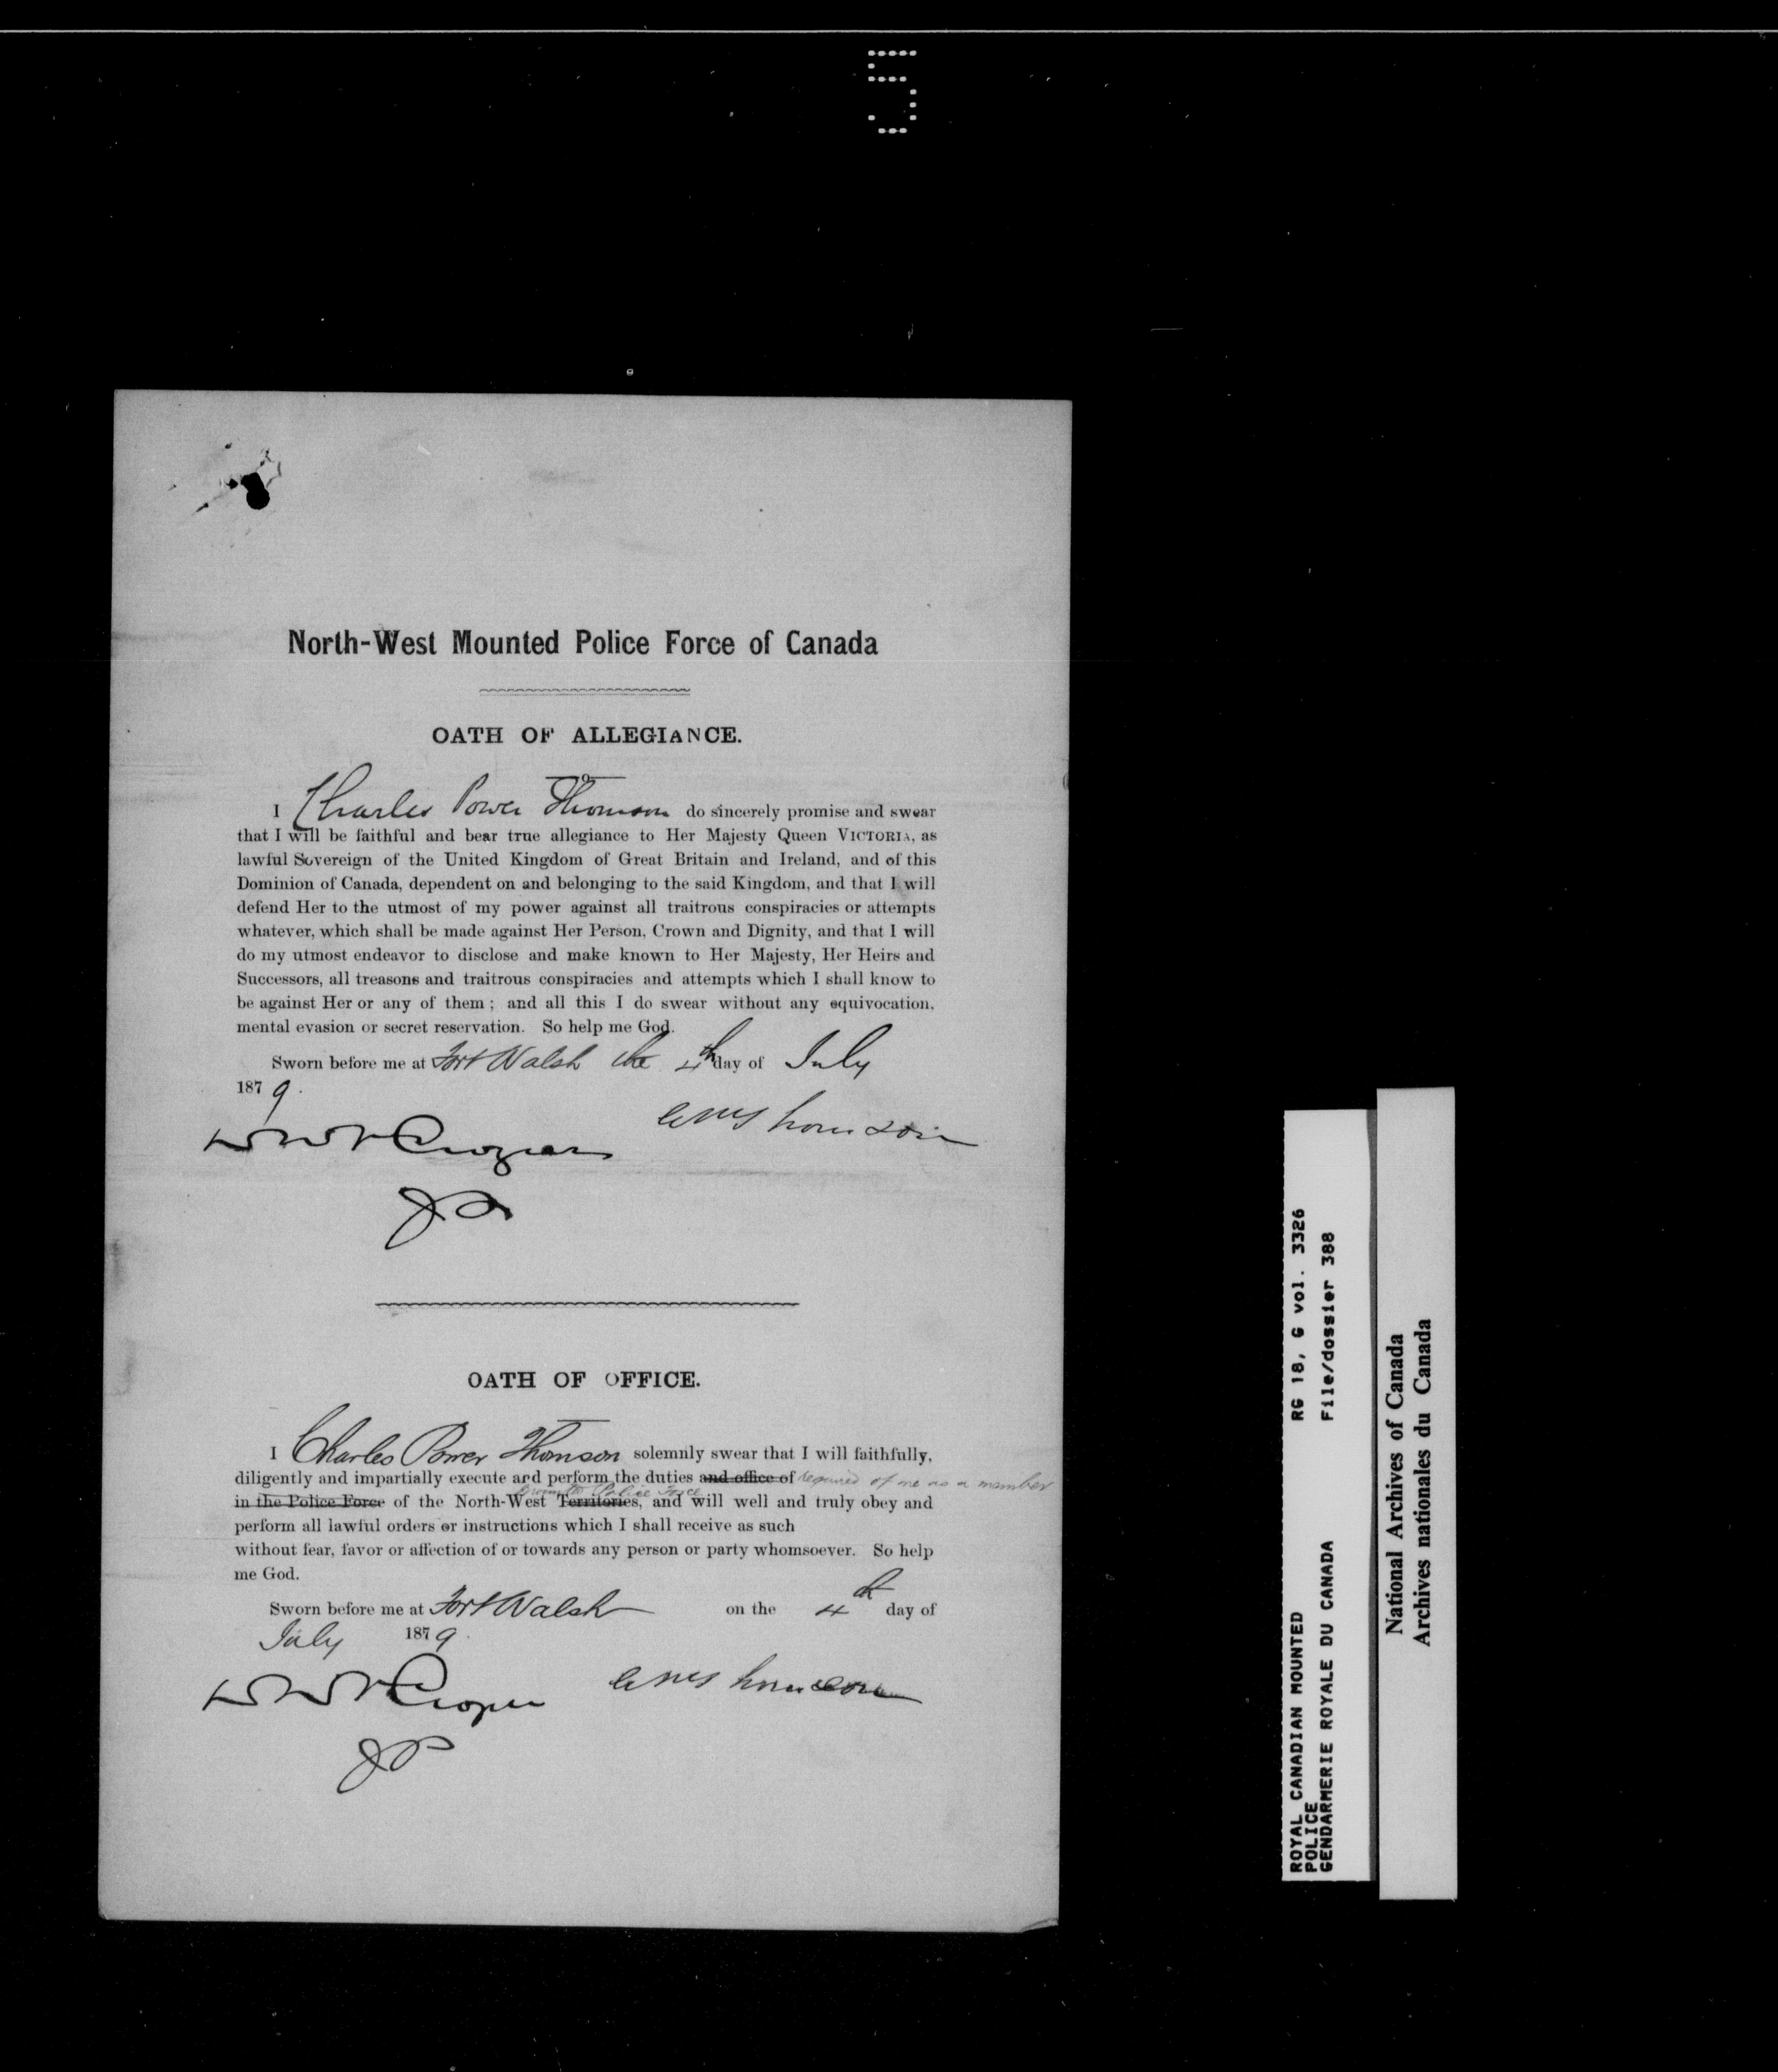 5
North-West Mounted Police Force of Canada
OATH OF ALLEGIANCE.
I Charles Power Thomson do sincerely promise and swear
that I will be faithful and bear true allegiance to Her Majesty Queen VICTORIA, as
lawful Sovereign of the United Kingdom of Great Britain and Ireland, and of this
Dominion of Canada, dependent on and belonging to the said Kingdom, and that I will
defend Her to the utmost of my power against all traitrous conspiracies or attempts
whatever, which shall be made against Her Person, Crown and Dignity, and that I will
do my utmost endeavor to disclose and make known to Her Majesty, Her Heirs and
Successors, all treasons and traitrous conspiracies and attempts which I shall know to
be against Her or any of them ; and all this I do swear without any equivocation,
mental evasion or secret reservation. So help me God.
Sworn before me at Fort Walsh the 4th day of July
1879.
Crozier
JP
OATH OF OFFICE.
I Charles Power Thomson solemnly swear that I will faithfully,
diligently and impartially execute and perform the duties and office of required of me as a member
Police Force
in the Police Force of the North-West Territories, and will well and truly obey and
perform all lawful orders or instructions which I shall receive as such
without fear, favor or affection of or towards any person or party whomsoever. So help
me God.
Sworn before me at Fort Walsh on the 4th day of
July 1879.
Crozier
JP
ROYAL CANADIAN MOUNTED RG 18, G vol. 3326
POLICE
GENDARMERIE ROYALE DU CANADA File/dossier 388
National Archives of Canada
Archives nationales du Canada